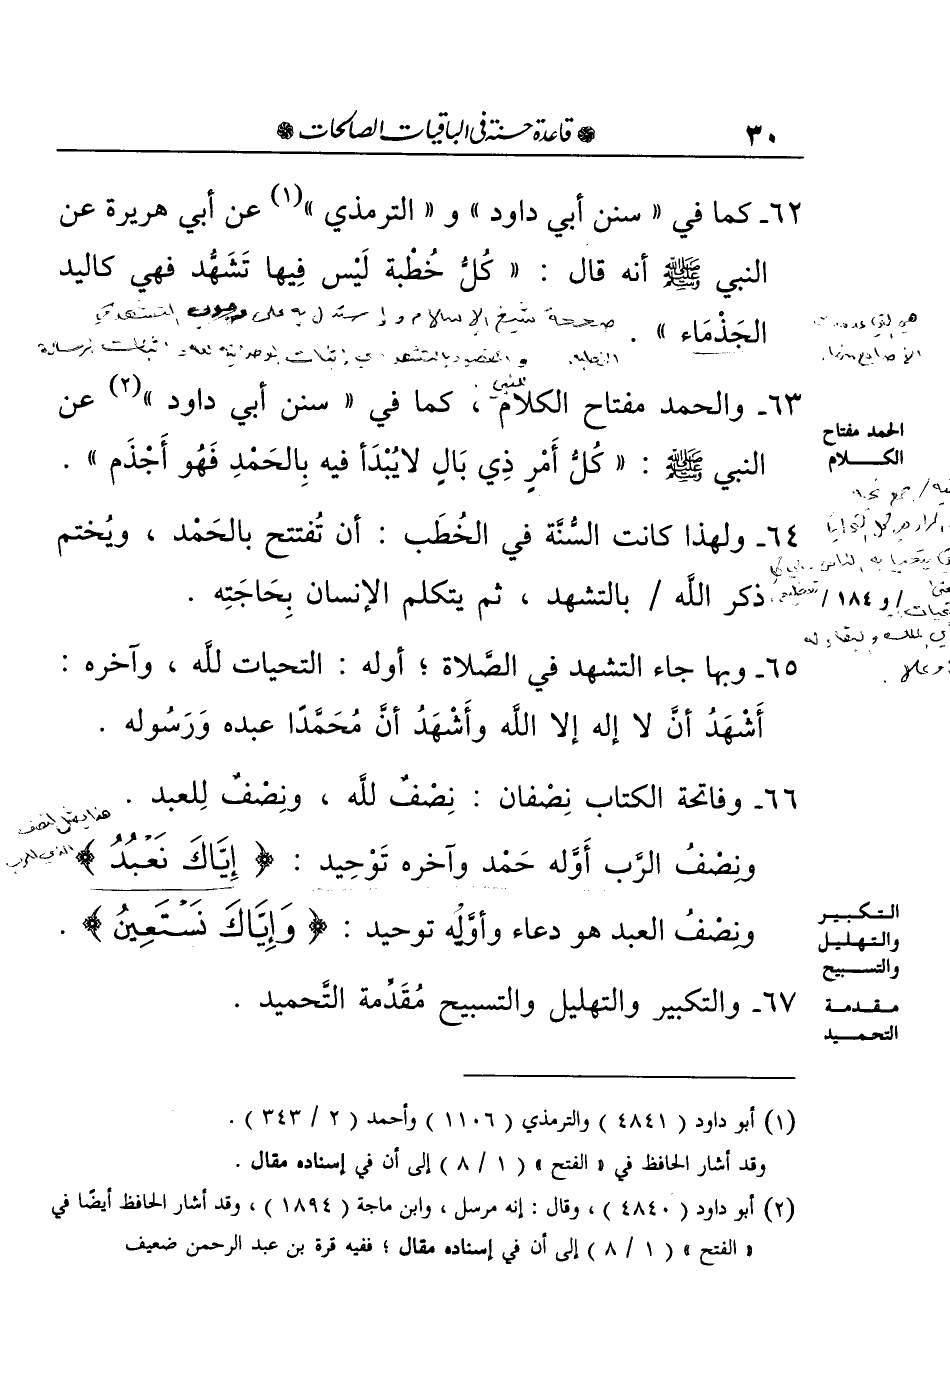 ٣٠ ❁ قاعدة حسنة في الباقيات الصالحات ❁
٦٢ـ كما في « سنن أبي داود » و « الترمذي »(١) عن أبي هريرة عن
النبي ﷺ أنه قال : « كُلُّ خُطْبة لَيْس فِيها تَشَهُّد فهي كاليد
صححه شيخ الإسلام واستدل به على وجوب التشهد في
هي التي
الجَذْمَاء » .
الخطبة والمقصود بالتشهد إثبات الوحدانية لله واثبات الرسالة
٦٣ـ والحمد مفتاح الكلام ، كما في « سنن أبي داود »(٢) عن
الحمد مفتاح
الكـــلام
النبي ﷺ : « كُلُّ أَمْرٍ ذِي بَالٍ لايُبْدَأ فيه بِالحَمْدِ فَهُو أَجْذَم » .
٦٤ـ ولهذا كانت السُّنَّة في الخُطَب : أن تُفتتح بالحَمْد ، ويُختم
ذكر اللَّه / بالتشهد ، ثم يتكلم الإنسان بِحَاجَتِه .
/ و ١٨٤ /
٦٥ـ وبها جاء التشهد في الصَّلاة ؛ أوله : التحيات للَّه ، وآخره :
أَشْهَدُ أنَّ لا إله إلا اللَّه وأَشْهَدُ أنَّ مُحَمَّدًا عبده وَرَسُوله .
٦٦ـ وفاتحة الكتاب نِصْفان : نِصْفٌ للَّه ، ونِصْفٌ لِلعبد .
هذا النصف
الذي للرب
ونِصْفُ الرَّب أَوَّله حَمْد وآخره تَوْحِيد : ﴿ إِيَّاكَ نَعْبُدُ ﴾
ونِصْفُ العبد هو دعاء وأوَّلُه توحيد : ﴿ وَإِيَّاكَ نَسْتَعِينُ ﴾ .
التـكـبـيـر
والتـهـليـل
والتســبيح
مـقـدمـة
التحـمـيــد
٦٧ـ والتكبير والتهليل والتسبيح مُقَدِّمة التَّحميد .
(١) أبو داود ( ٤٨٤١ ) والترمذي ( ١١٠٦ ) وأحمد ( ٢ / ٣٤٣ ) .
وقد أشار الحافظ في « الفتح » ( ١ / ٨ ) إلى أن في إسناده مقال .
(٢) أبو داود ( ٤٨٤٠ ) ، وقال : إنه مرسل ، وابن ماجة ( ١٨٩٤ ) ، وقد أشار الحافظ أيضًا في
« الفتح » ( ١ / ٨ ) إلى أن في إسناده مقال ؛ ففيه قرة بن عبد الرحمن ضعيف